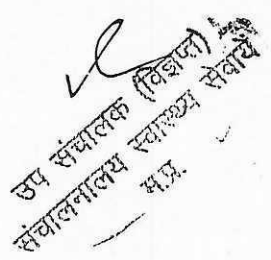 उप संचालक (विज्ञप्त)
संचालनालय स्वास्थ्य सेवायें
म.प्र.